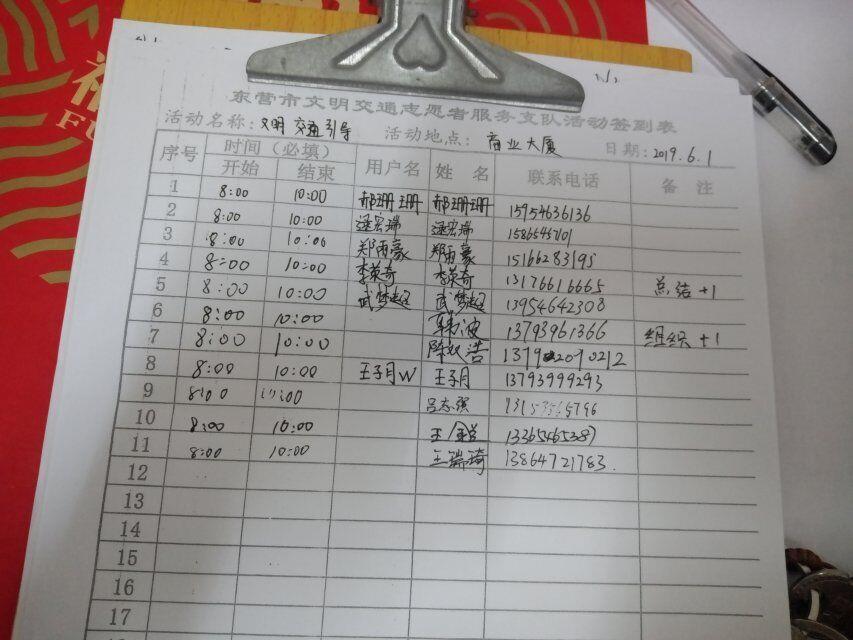 东营市文明交通志愿者服务支队活动签到表
活动名称：文明 交通引导 活动地点：商业大厦 日期：2019.6.1
序号 时间（必填） 用户名 姓 名 联系电话 备 注
开始 结束
1 8:00 10:00 郝珊珊 郝珊珊 15954636136
2 8:00 10:00 逯宏瑞 逯宏瑞
3 8:00 10:00 郑雨豪 郑雨豪 15166283195
4 8:00 10:00 李英奇 李英奇 13176616665
5 8:00 10:00 武梦超 武梦超 13954642308 总结+1
6 8:00 10:00 韩波 13793961366
7 8:00 10:00 浩 组织+1
8 8:00 10:00 王子月W 王子月 13793999293
9 8:00 10:00 吕志强
10 8:00 10:00 王
11 8:00 10:00 王瑞琦 13864721783.
12
13
14
15
16
17
福
FU